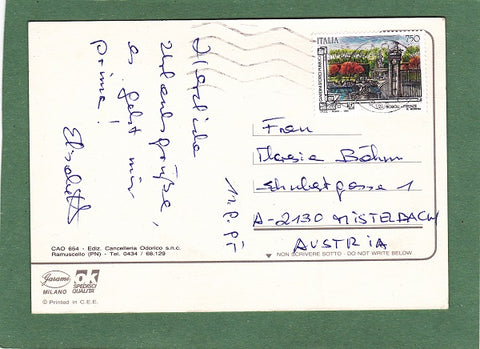 Herzliche
Urlaubsgrüße,
es geht mir
prima!
Elisabeth
ITALIA 750
GIARDINI STORICI PUBBLICI
BOBOLI - FIRENZE
Frau
Theresia Böhm
Schubertgasse 1
A-2130 MISTELBACH
AUSTRIA
CAO 664 - Ediz. Cancelleria Odorico s.n.c.
Ramuscello (PN) - Tel. 0434 / 68.129
NON SCRIVERE SOTTO - DO NOT WRITE BELOW
Garami
MILANO
OK
SPEDISCI
QUALITÀ
© Printed in C.E.E.